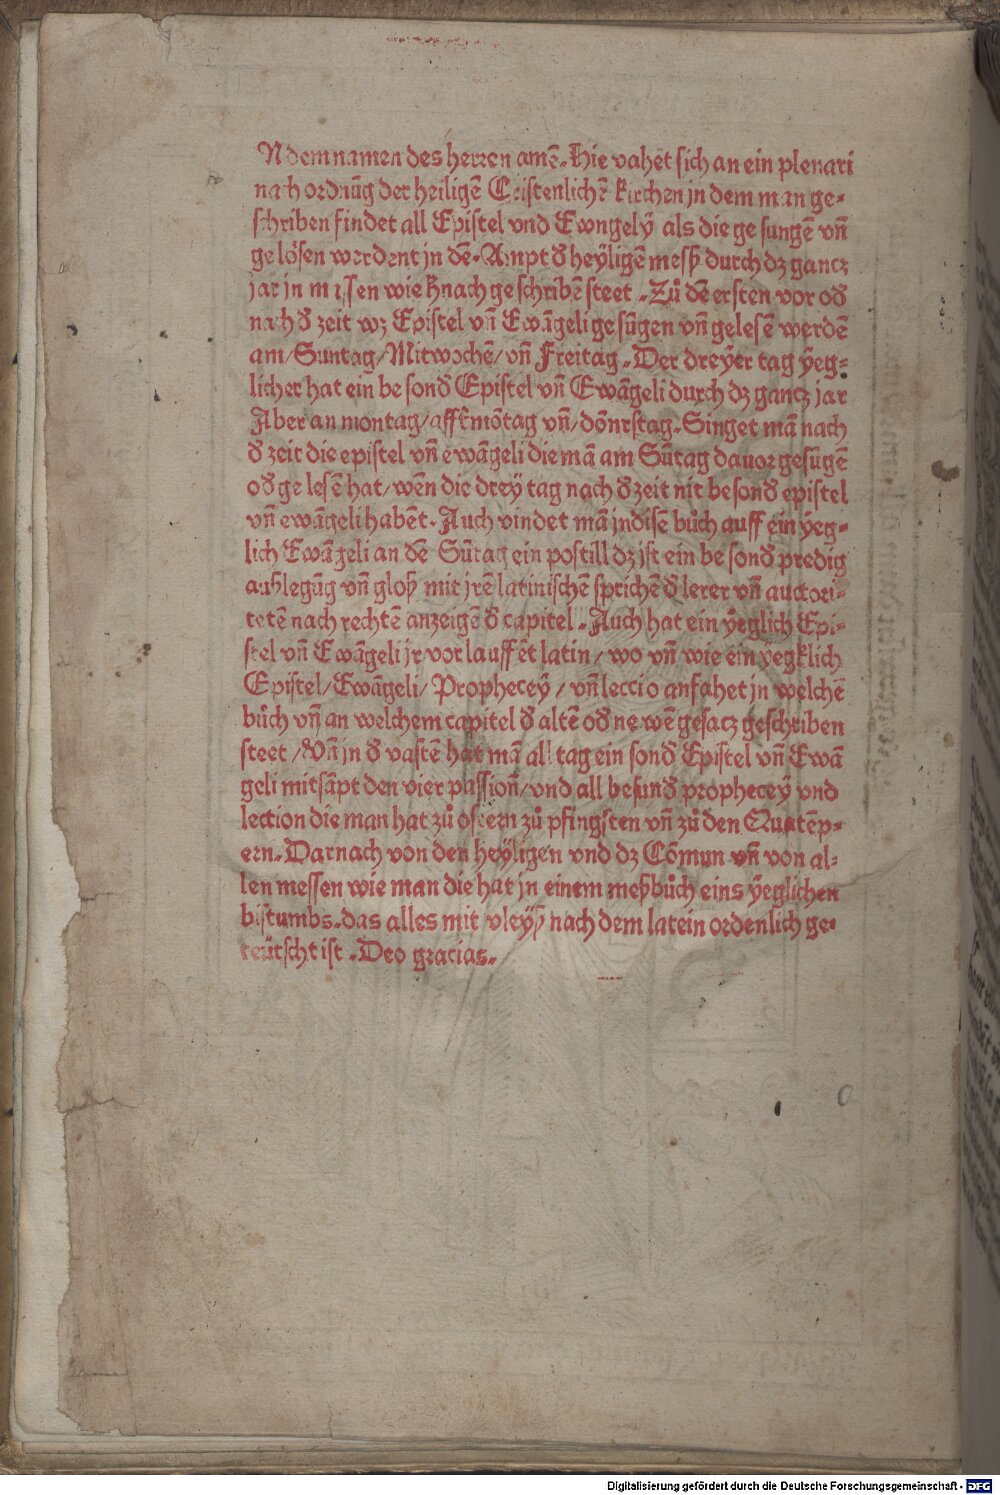 N dem namen des herren amē. Hie vahet sich an ein plenari
nach ordnūg der heiligē Cristenlichē kirchen jn dem man ge⸗
schriben findet all Epistel vnd Ewngelÿ als die gesungē vñ
gelösen werdent jn dē. Ampt đ heÿligē mesß durch dz gantz
jar jn massen wie hnach geschribē steet. Zů dē ersten vor ođ
nach đ zeit wz Epistel vñ Ewāgeli gesūgen vñ gelesē werdē
am/Suntag/Mitwochē/vñ Freitag. Der dreÿer tag ÿeg⸗
licher hat ein besonđ Epistel vñ Ewāgeli durch dz gantz jar
Aber an montag/afftmōtag vñ/dōnrstag. Singet mā nach
đ zeit die epistel vñ ewāgeli die mā am Sūtag dauor gesūgē
ođ gelesē hat/wēn die dreÿ tag nach đ zeit nit besonđ epistel
vñ ewāgeli habēt. Auch vindet mā jn disē bůch auff ein ÿeg⸗
lich Ewāgeli an dē Sūtag ein postill dz jst ein besonđ predig
außlegūg vñ gloß mit jrē latinischē sprichē đ lerer vñ auctori⸗
tetē nach rechtē anzeigē đ capitel. Auch hat ein ÿeglich Epi⸗
stel vñ Ewāgeli jr vorlauffēt latin/wo vñ wie ein ÿegklich
Epistel/Ewāgeli/Propheceÿ/vñ leccio anfahet jn welchē
bůch vñ an welchem capitel đ altē ođ newē gesatz geschriben
steet/Vñ jn đ vastē hat mā all tag ein sonđ Epistel vñ Ewā
geli mitsāpt den vier passionñ/vnd all besunđ prophecey vnd
lection die man hat zů ostern zů pfingsten vñ zů den Quatēp⸗
ern. Darnach von den heÿligen vnd dz Cōmun vñ von al⸗
len messen wie man die hat jn einem meßbůch eins ÿeglichen
bistumbs. das alles mit vleÿß nach dem latein ordenlich ge⸗
teütscht ist. Deo gracias.
Digitalisierung gefördert durch die Deutsche Forschungsgemeinschaft - DFG